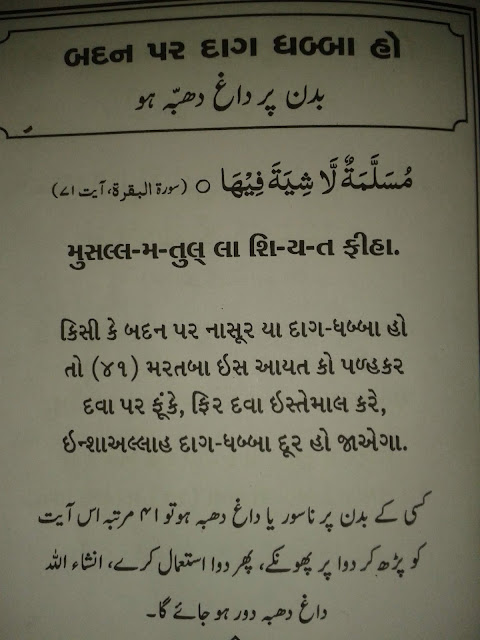 બદન પર દાગ ધબ્બા હો
بدن پر داغ دھبّہ ہو
مُسَلَّمَةٌ لَّا شِيَةَ فِيْهَا ○ (سورۃ البقرۃ، آیت ۷۱)
મુસલ્લ-મ-તુલ્ લા શિ-ય-ત ફીહા.
કિસી કે બદન પર નાસૂર યા દાગ-ધબ્બા હો
તો (૪૧) મરતબા ઇસ આયત કો પળ્હકર
દવા પર ફૂંકે, ફિર દવા ઇસ્તેમાલ કરે,
ઇન્શાઅલ્લાહ દાગ-ધબ્બા દૂર હો જાએગા.
کسی کے بدن پر ناسور یا داغ دھبہ ہو تو ۴۱ مرتبہ اس آیت
کو پڑھ کر دوا پر پھونکے، پھر دوا استعمال کرے، انشاء اللہ
داغ دھبہ دور ہو جائے گا۔